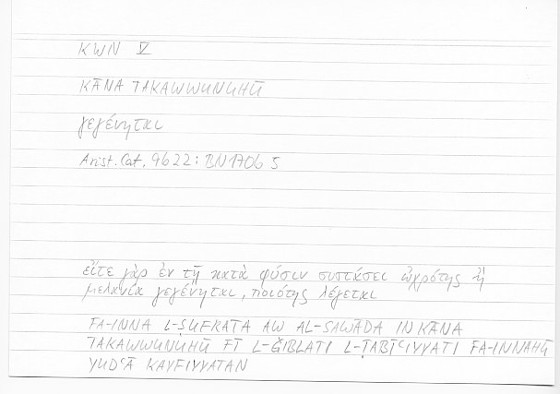 KWN V
KĀNA TAKAWWUNUHŪ
γεγένηται
Arist. Cat. 9b22; BN170b 5
εἴτε γὰρ ἐν τῇ κατὰ φύσιν συστάσει ὠχρότης ἢ
μελανία γεγένηται, ποιότης λέγεται
FA-INNA L-ṢUFRATA AW AL-SAWĀDA IN KĀNA
TAKAWWUNUHŪ FĪ L-ǦIBLATI L-ṬABĪʿIYYATI FA-INNAHŪ
YUDʿĀ KAYFIYYATAN